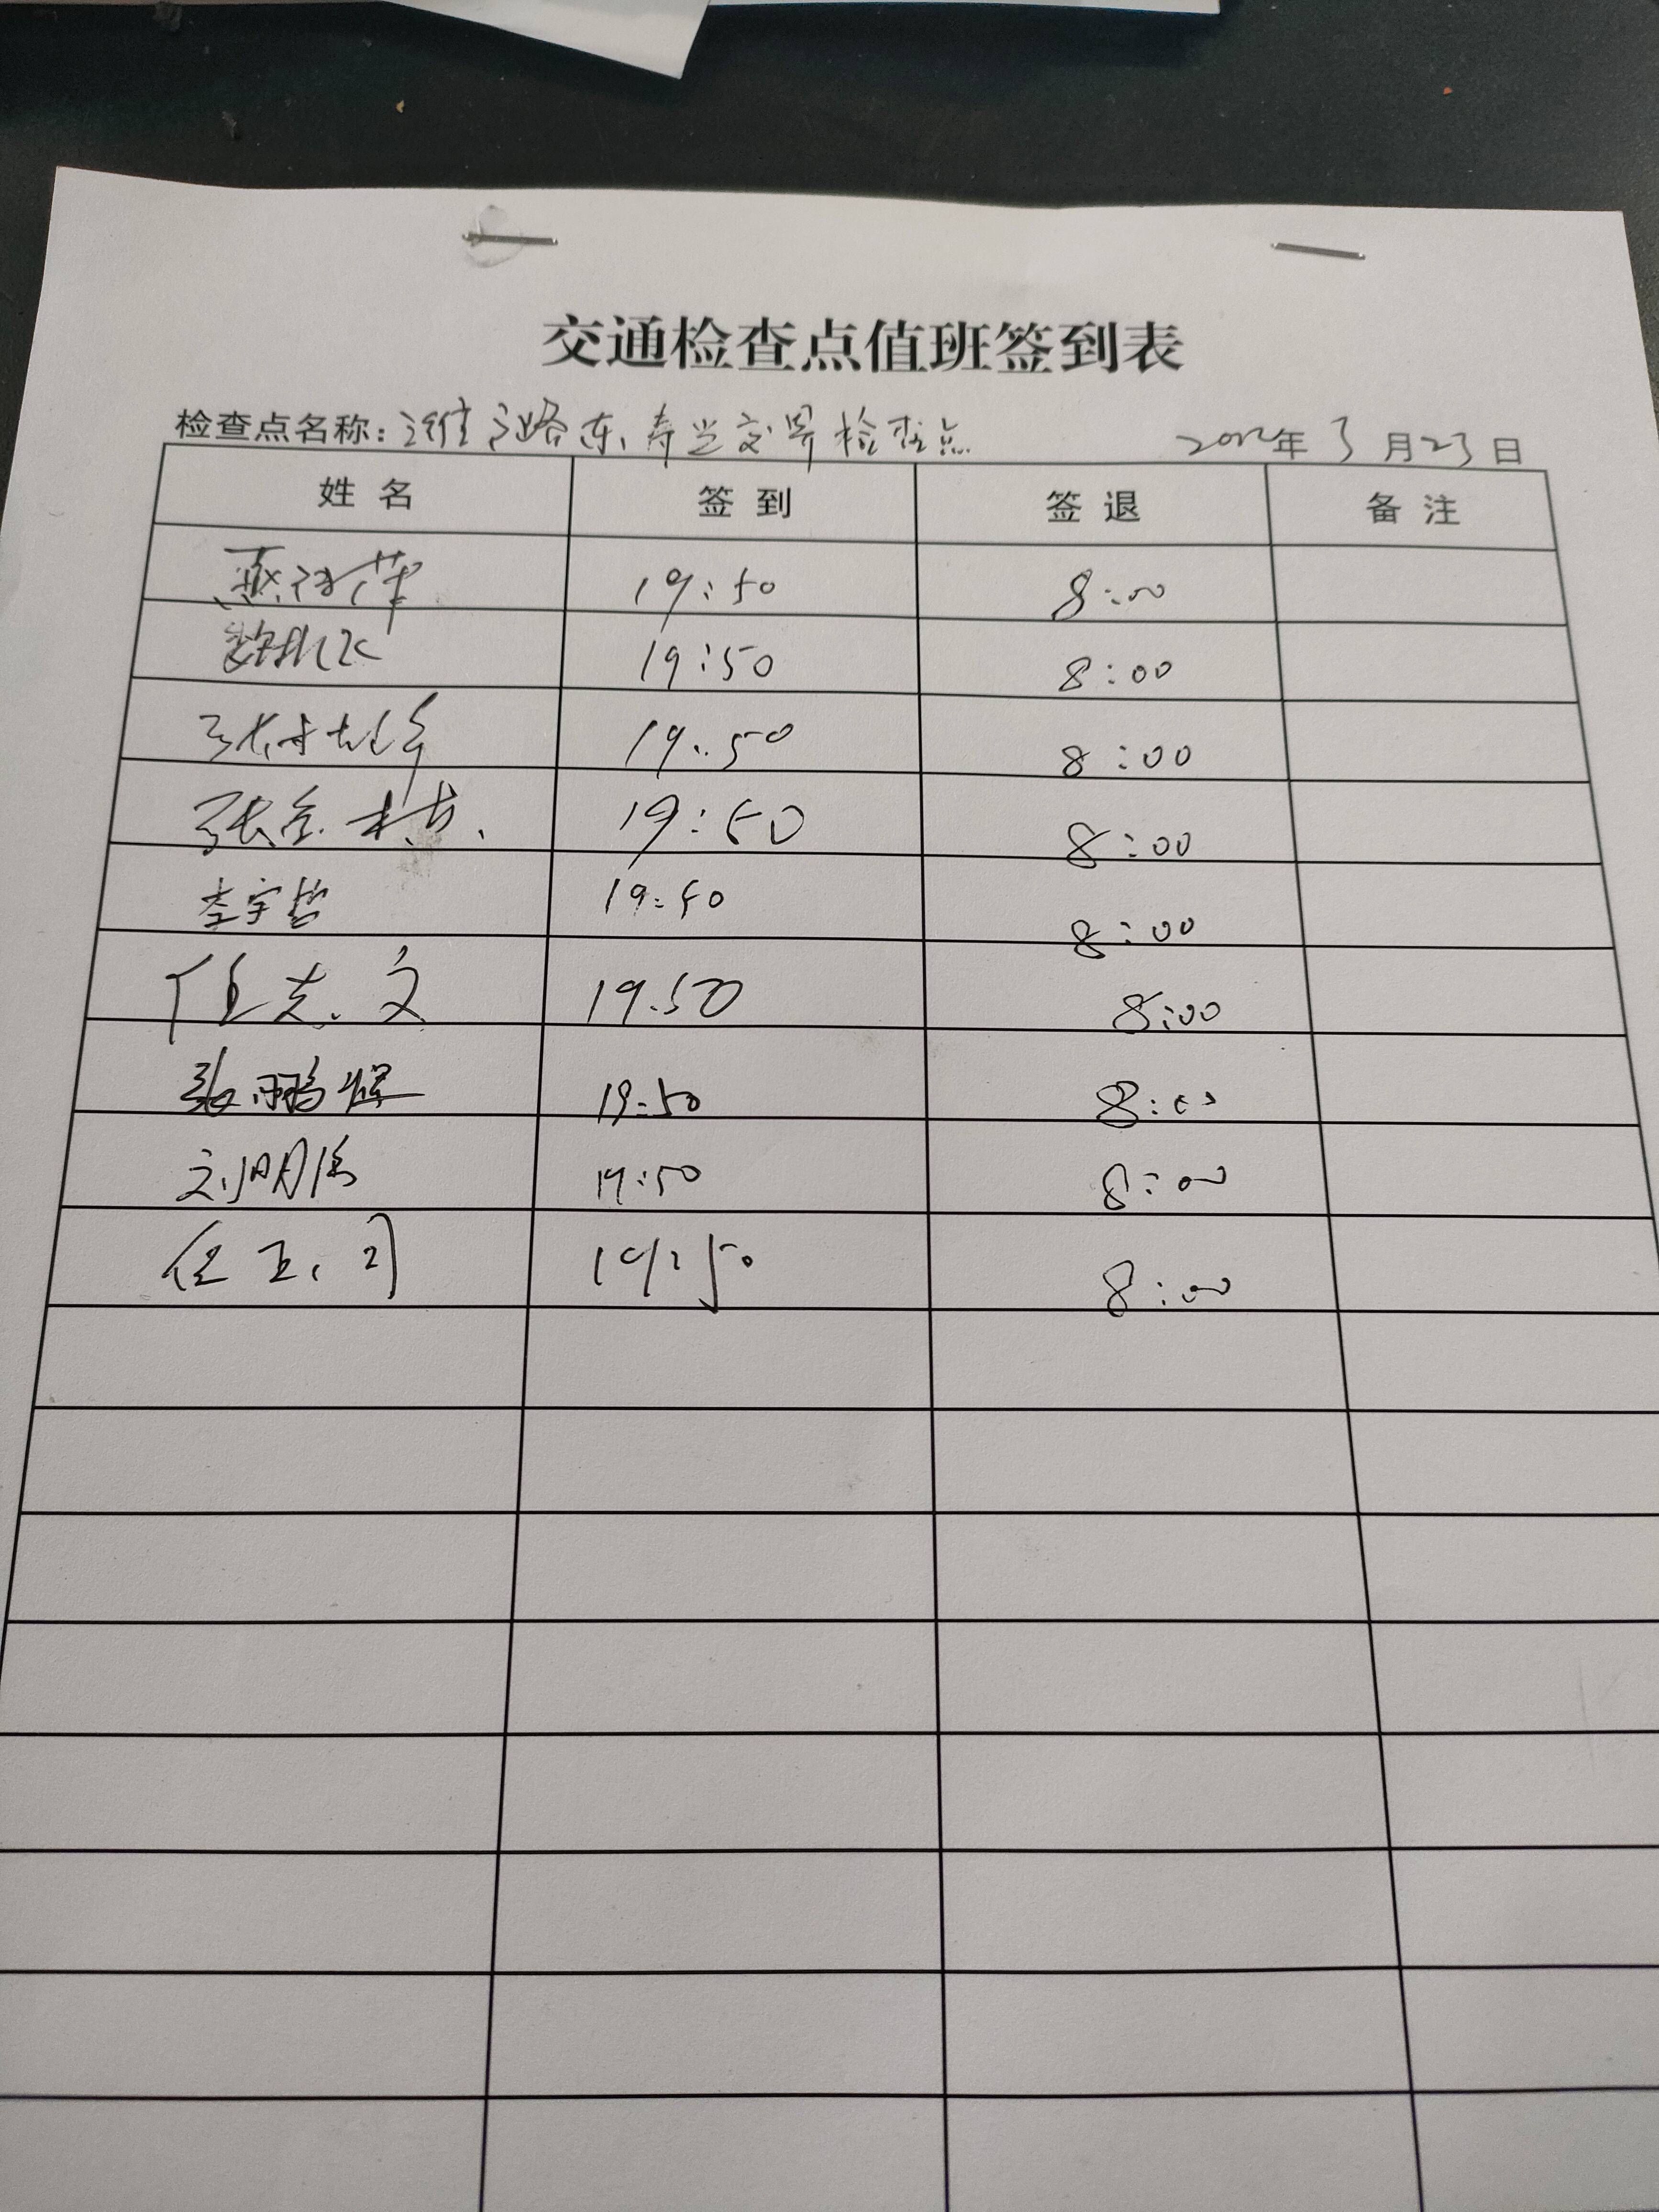 交通检查点值班签到表
检查点名称: 潍高路东寿光交界检查点 2022年3月23日
姓名 签到 签退 备注
19:50 8:00
19:50 8:00
19:50 8:00
张金 19:50 8:00
李宇哲 19:50 8:00
任志文 19.50 8:00
张鹏辉 19:50 8:00
刘明 19:50 8:00
任玉 19:50 8:00